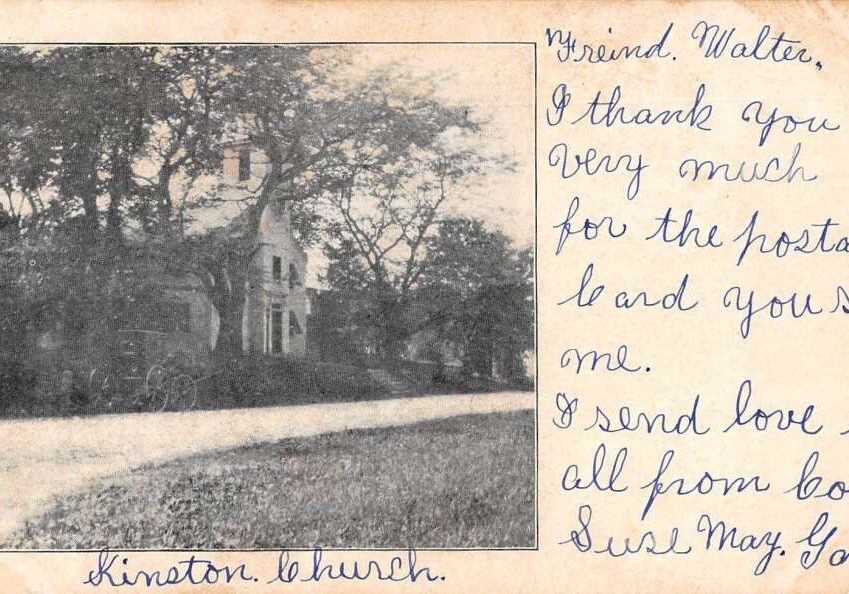 Freind. Walter,
I thank you
very much
for the posta
Card you s
me.
I send love
all from Co
Suse May. Ga
Kinston. Church.